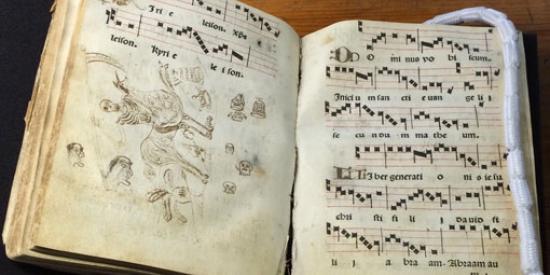 Iri e leison. Xp̄e
leison. Kyri e le i son.
Do mi nus vo bi scum.
Iniciu m san cti e uan ge li j
se cu n du m ma the um.
Li ber generati o ni s ie su
chri sti fi li j da vid fi
li j a bra am. Abraam au